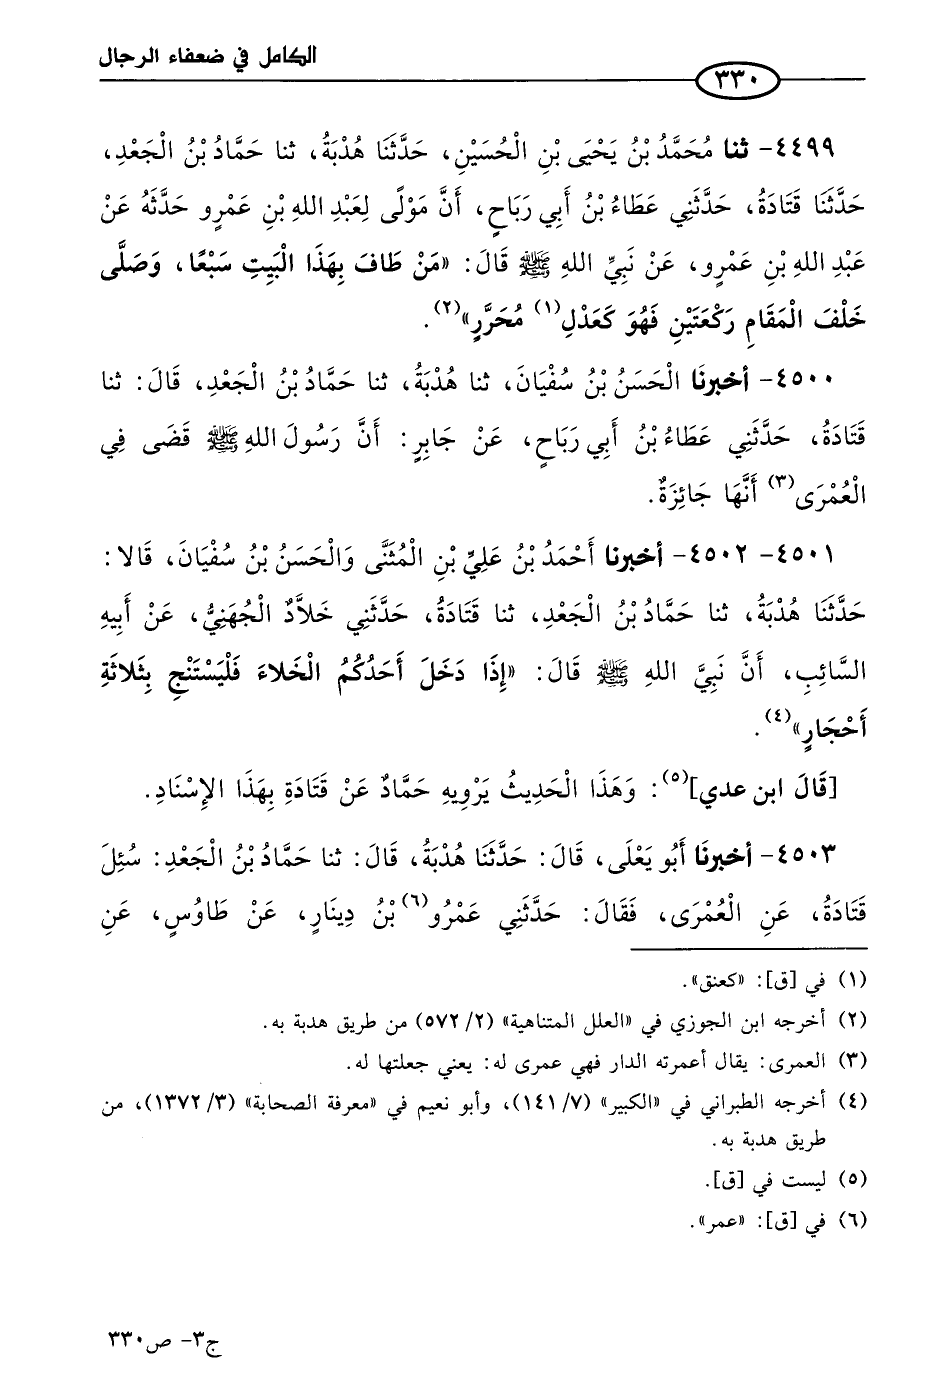 الكامل في ضعفاء الرجال
٣٣٠
٤٤٩٩- ثنا مُحَمَّدُ بْنُ يَحْيَى بْنِ الْحُسَيْنِ، حَدَّثَنَا هُدْبَةُ، ثنا حَمَّادُ بْنُ الْجَعْدِ،
حَدَّثَنَا قَتَادَةُ، حَدَّثَنِي عَطَاءُ بْنُ أَبِي رَبَاحٍ، أَنَّ مَوْلًى لِعَبْدِ اللهِ بْنِ عَمْرٍو حَدَّثَهُ عَنْ
عَبْدِ اللهِ بْنِ عَمْرٍو، عَنْ نَبِيِّ اللهِ ﷺ قَالَ: «مَنْ طَافَ بِهَذَا الْبَيتِ سَبْعًا، وَصَلَّى
خَلْفَ الْمَقَامِ رَكْعَتَيْنِ فَهُوَ كَعَدْلِ(١) مُحَرَّرٍ»(٢).
٤٥٠٠- أخبرنَا الْحَسَنُ بْنُ سُفْيَانَ، ثنا هُدْبَةُ، ثنا حَمَّادُ بْنُ الْجَعْدِ، قَالَ: ثنا
قَتَادَةُ، حَدَّثَنِي عَطَاءُ بْنُ أَبِي رَبَاحٍ، عَنْ جَابِرٍ: أَنَّ رَسُولَ اللهِ ﷺ قَضَى فِي
الْعُمْرَى(٣) أَنَّهَا جَائِزَةٌ.
٤٥٠١- ٤٥٠٢- أخبرنا أَحْمَدُ بْنُ عَلِيِّ بْنِ الْمُثَنَّى وَالْحَسَنُ بْنُ سُفْيَانَ، قَالا:
حَدَّثَنَا هُدْبَةُ، ثنا حَمَّادُ بْنُ الْجَعْدِ، ثنا قَتَادَةُ، حَدَّثَنِي خَلاَّدٌ الْجُهَنِيُّ، عَنْ أَبِيهِ
السَّائِبِ، أَنَّ نَبِيَّ اللهِ ﷺ قَالَ: «إِذَا دَخَلَ أَحَدُكُمُ الْخَلاءَ فَلْيَسْتَنْجِ بِثَلاثَةِ
أَحْجَارٍ»(٤).
[قَالَ ابن عدي](٥): وَهَذَا الْحَدِيثُ يَرْوِيهِ حَمَّادٌ عَنْ قَتَادَةِ بِهَذَا الإِسْنَادِ.
٤٥٠٣- أخبرنَا أَبُو يَعْلَى، قَالَ: حَدَّثَنَا هُدْبَةُ، قَالَ: ثنا حَمَّادُ بْنُ الْجَعْدِ: سُئِلَ
قَتَادَةُ، عَنِ الْعُمْرَى، فَقَالَ: حَدَّثَنِي عَمْرُو(٦) بْنُ دِينَارٍ، عَنْ طَاوُسٍ، عَنِ
(١) في [ق]: «كعنق».
(٢) أخرجه ابن الجوزي في «العلل المتناهية» (٥٧٢/٢) من طريق هدبة به.
(٣) العمرى: يقال أعمرته الدار فهي عمرى له: يعني جعلتها له.
(٤) أخرجه الطبراني في «الكبير» (١٤١/٧)، وأبو نعيم في «معرفة الصحابة» (١٣٧٢/٣)، من
طريق هدبة به.
(٥) ليست في [ق].
(٦) في [ق]: «عمر».
ج٣- ص٣٣٠